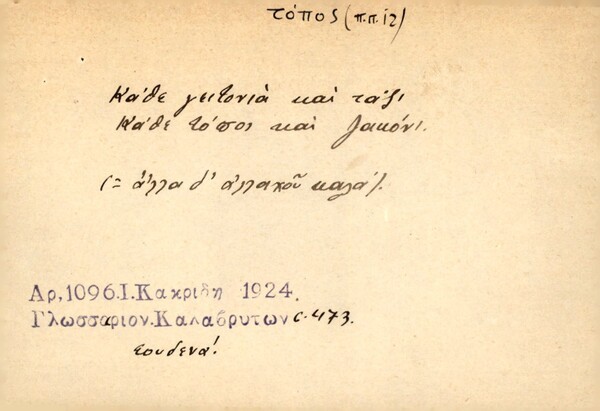 τόπος (π.π. 12)
Κάθε γειτονιὰ καὶ τάξι
Κάθε τόπος καὶ ζακόνι.
(= ἄλλα δ' ἀλλαχοῦ καλά).
Αρ,1096.Ι.Κακριδη 1924.
Γλωσσαριον.Καλαβρυτων σ. 473.
Σουδενά!